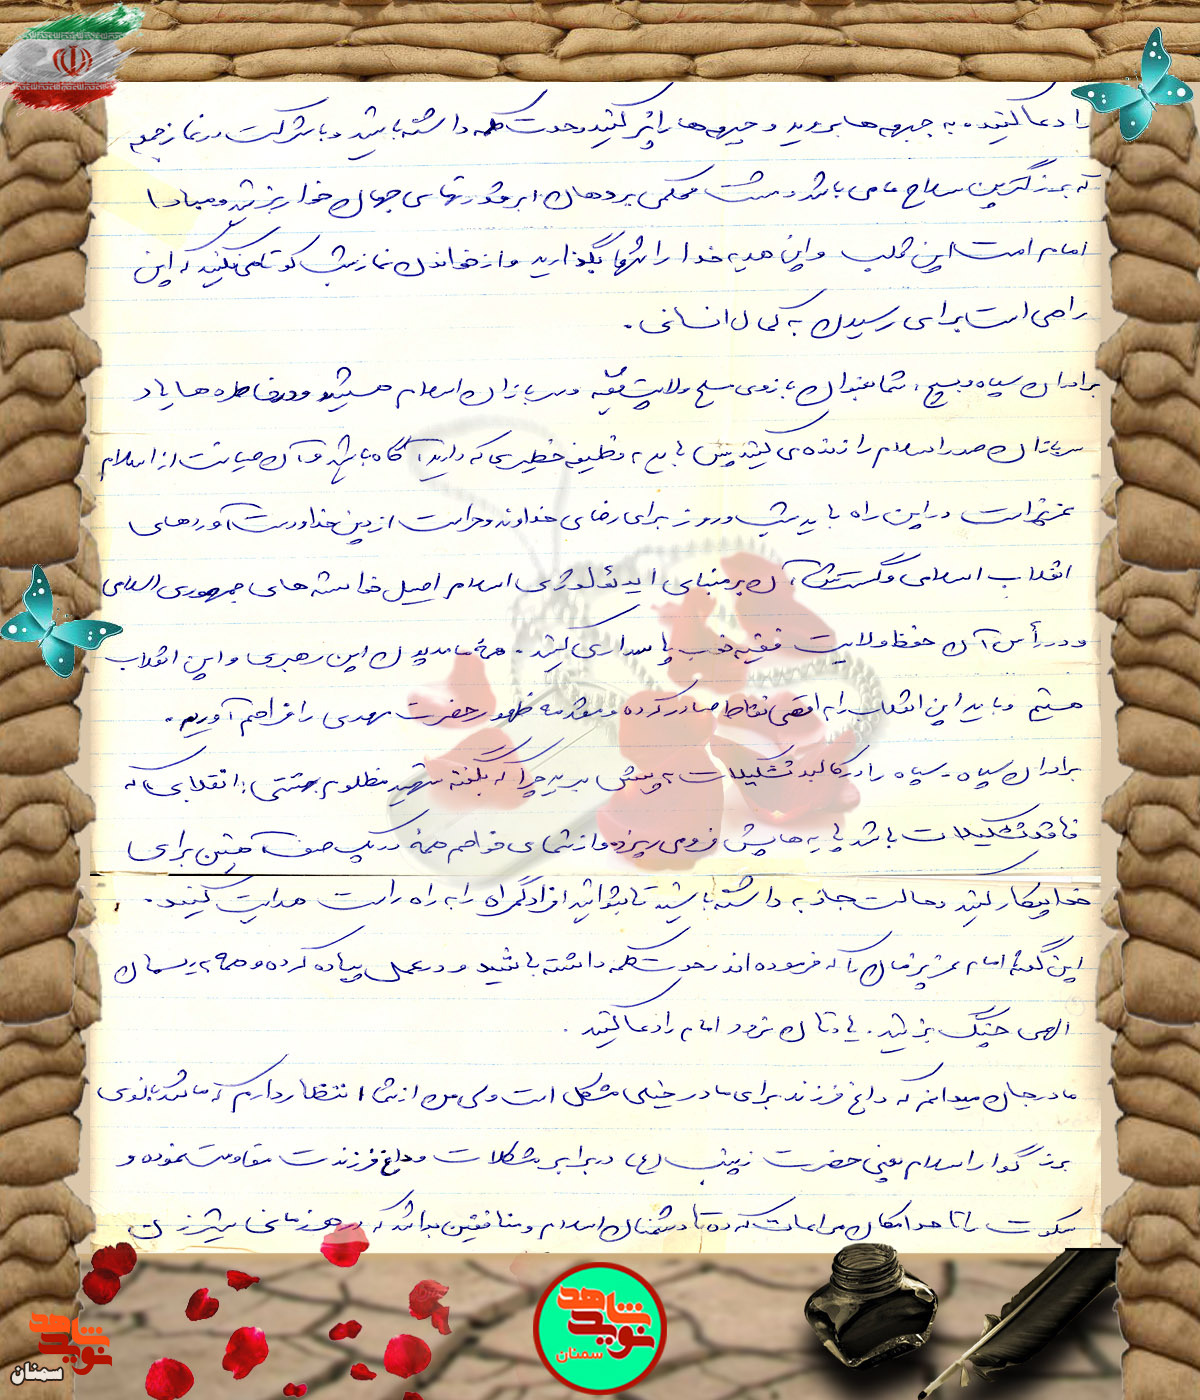 را دعا کنید و به جبهه ها بروید و جبهه ها را پر کنید وحدت کلمه داشته باشید و با شرکت در نماز جمعه
که بزرگترین سلاح ما می باشد مشت محکمی بر دهان ابرقدرتهای جهان خوار بزنید و مبادا
امام امت این قلب و این هدیه خدا را تنها بگذارید و از خواندن نماز شب کوتاهی نکنید که این
راهی است برای رسیدن به کمال انسانی.
برادران سپاه و بسیج، شما بعنوان بازوی مسلح ولایت فقیه و سربازان اسلام هستید و در خاطره ها یاد
سربازان صدر اسلام را زنده می کنید پس باید به وظیفه خطیری که دارید آگاه باشید و آن صیانت از اسلام
عزیز است در این راه باید شب و روز برای رضای خداوند و حراست از دین خدا و دست آوردهای
انقلاب اسلامی و گسترش آن بر مبنای ایدئولوژی اسلام اصیل خواسته های جمهوری اسلامی
و در رأس آن حفظ ولایت فقیه خوب پاسداری کنید. همهٔ ما مدیون این رهبری و این انقلاب
هستیم و باید این انقلاب را به اقصی نقاط صادر کرده و مقدمه ظهور حضرت مهدی را فراهم آوریم.
برادران سپاه، سپاه را در کالبد تشکیلات به پیش ببرید چرا که بگفته شهید مظلوم بهشتی: انقلابی که
فاقد تشکیلات باشد پایه هایش فرو می ریزد و از شما می خواهم همه در یک صف آهنین برای
خدا پیکار کنید و حالت جاذبه داشته باشید تا بتوانید افراد گمراه را به راه راست هدایت کنید.
این گفتهٔ امام عزیزمان را که فرموده اند وحدت کلمه داشته باشید و در عمل پیاده کرده و همه به ریسمان
الهی چنگ بزنید. یادتان نرود امام را دعا کنید.
مادر جان میدانم که داغ فرزند برای مادر خیلی مشکل است ولی من از شما انتظار دارم که مانند بانوی
بزرگوار اسلام یعنی حضرت زینب (ع) در برابر مشکلات و داغ فرزندت مقاومت نموده و
سکوت را تا حد امکان مراعات کرده تا دشمنان اسلام و منافقین بدانند که در هر زمانی شیرزن
شاهد
نوید
سمنان
شاهد
نوید
سمنان